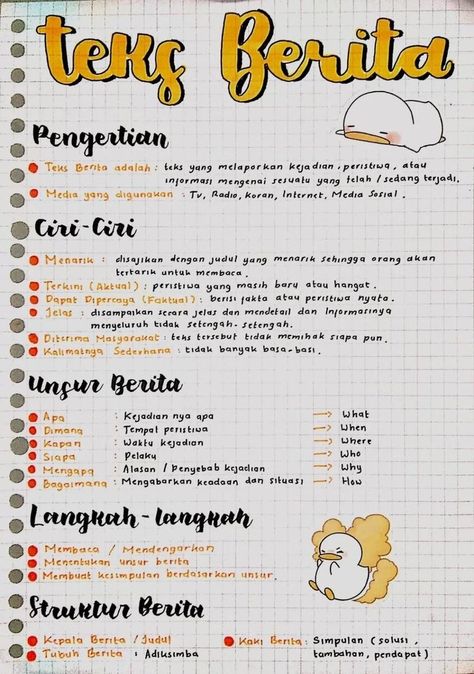 teks Berita
Pengertian
Teks Berita adalah : teks yang melaporkan kejadian, peristiwa, atau
informasi mengenai sesuatu yang telah / sedang terjadi.
Media yang digunakan : Tv, Radio, Koran, Internet, Media Sosial.
Ciri-Ciri
Menarik : disajikan dengan judul yang menarik sehingga orang akan
tertarik untuk membaca.
Terkini (Aktual) : peristiwa yang masih baru atau hangat.
Dapat Dipercaya (Faktual) : berisi fakta atau peristiwa nyata.
Jelas : disampaikan secara jelas dan mendetail dan Informasinya
menyeluruh tidak setengah-setengah.
Diterima Masyarakat : teks tersebut tidak memihak siapa pun.
Kalimatnya Sederhana : tidak banyak basa-basi.
Unsur Berita
Apa : Kejadian nya apa → What
Dimana : Tempat peristiwa → When
Kapan : Waktu kejadian → Where
Siapa : Pelaku → Who
Mengapa : Alasan / Penyebab kejadian → Why
Bagaimana : Mengabarkan keadaan dan situasi → How
Langkah-langkah
Membaca / Mendengarkan
Menentukan unsur berita
Membuat kesimpulan berdasarkan unsur.
Struktur Berita
Kepala Berita / Judul
Tubuh Berita : Adiksimba
Kaki Berita : Simpulan (solusi,
tambahan, pendapat)